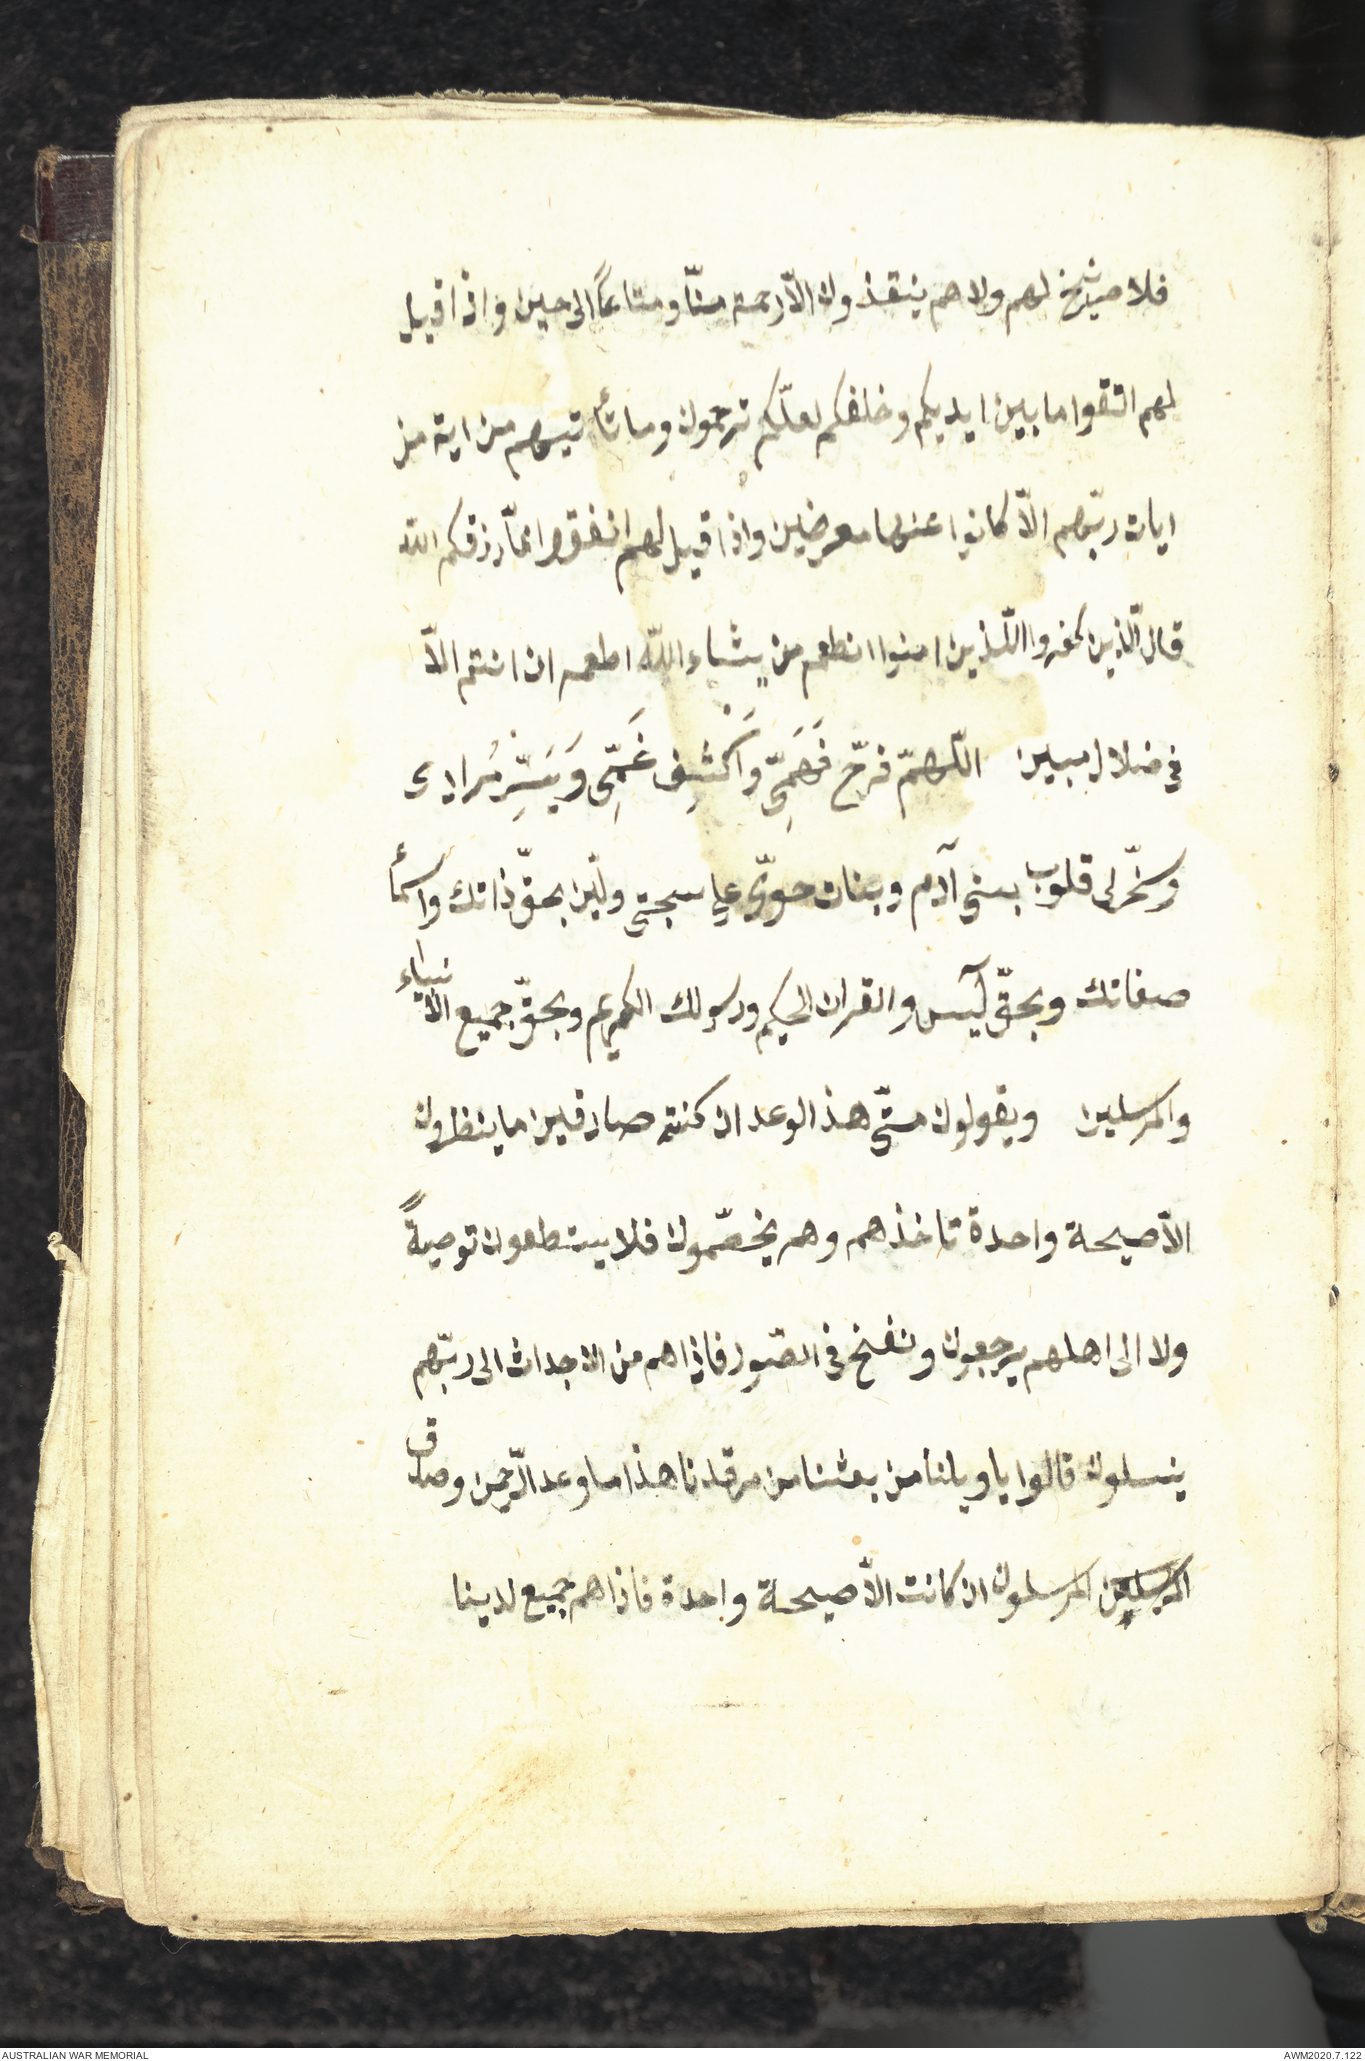 فلا صريخ لهم ولا هم ينقذون الّا رحمة منّا ومتاعاً الى حين واذا قيل
لهم اتقوا ما بين ايديكم وخلفكم لعلّكم ترحمون وما تأتيهم من اية من
ايات ربّهم الّا كانوا عنها معرضين واذا قيل لهم انفقوا ممّا رزقكم الله
قال الّذين كفروا اللّذين امنوا انطعم من يشاء اللّه اطعمه ان انتم الّا
فى ضلال مبين اللّهمّ فرّج فَهَمِّى وَاكْشِف غَمِّى وَيَسِّرْ مُرادى
وسخّر لى قلوب بنى آدم وبنات حوّى على محبتى ولّين بحقّ ذاتك واسمأ
صفاتك وبحقّ يٓس والقران الحكيم ورسولك الكريم وبحقّ جميع الانبياء
والمرسلين ويقولون متّى هذ الوعد ان كنتم صادقين ما ينظرون
الّا صيحة واحدة تاخذهم وهم يخصّمون فلا يستطعون توصيةً
ولا الى اهلهم يرجعون ونفخ فى الصّور فاذا هم من الاجداث الى ربّهم
ينسلون قالوا يا ويلنا من بعثنا من مرقدنا هذا ما وعد الرّحمن وصدق
المرسلين المرسلون ان كانت الّا صيحة واحدة فاذا هم جميع لدينا
AUSTRALIAN WAR MEMORIAL
AWM2020.7.122